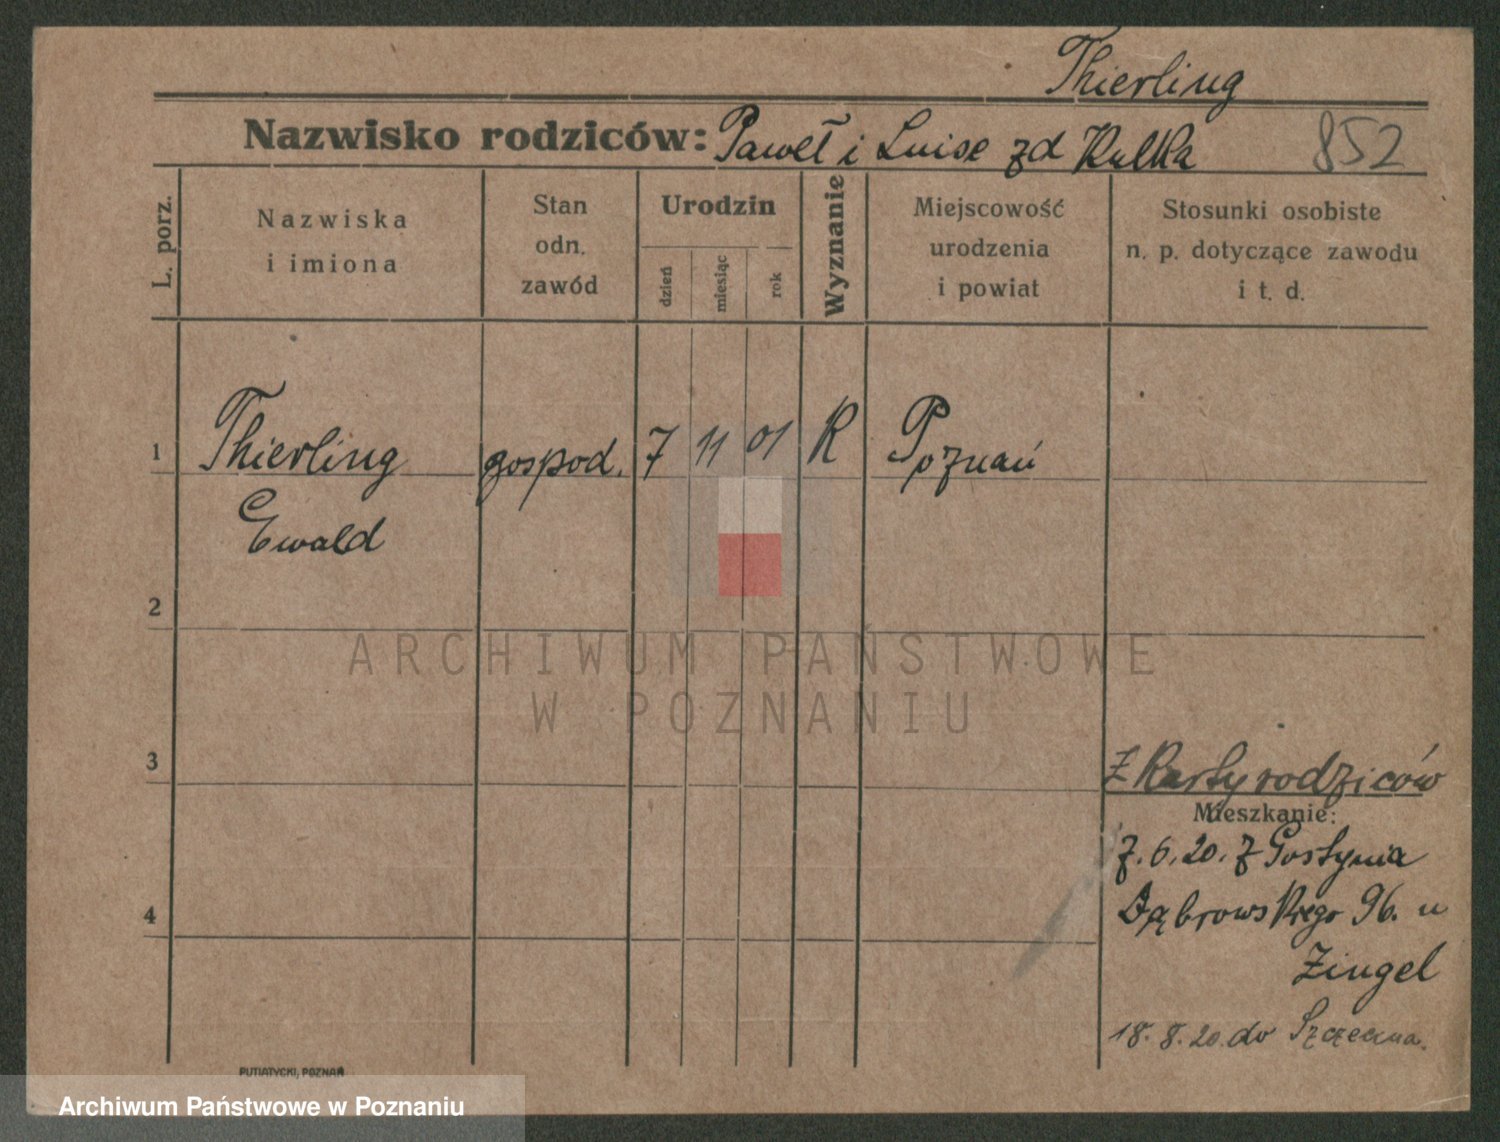 Thierling
Nazwisko rodziców: Paweł i Luise zd Kulka 852
L. porz.
Nazwiska
i imiona
Stan
odn.
zawód
Urodzin
dzień
miesiąc
rok
Wyznanie
Miejscowość
urodzenia
i powiat
Stosunki osobiste
n. p. dotyczące zawodu
i t. d.
1 Thierling gospod. 7 11 01 R Poznań
Ewald
2
3
Z Karty rodziców
Mieszkanie:
7.6.20. z Gostynia
4
Dąbrowskiego 96. u
Zingel
18.8.20. do Szczecina.
PUTIATYCKI, POZNAŃ
ARCHIWUM PAŃSTWOWE
W POZNANIU
Archiwum Państwowe w Poznaniu